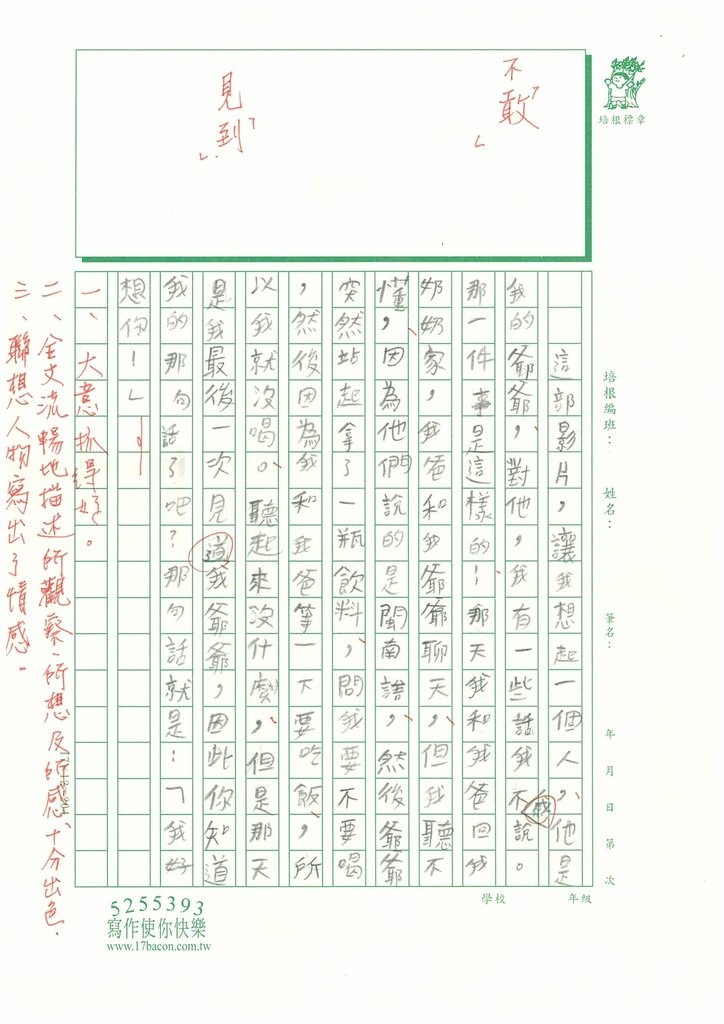 不敢
見到
培根標章
這部影片，讓我想起一個人，他是
我的爺爺，對他，我有一些話我不敢說。
那一件事是這樣的！那天我和我爸回我
奶奶家，我爸和我爺爺聊天，但我聽不
懂，因為他們說的是閩南語，然後爺爺
突然站起拿了一瓶飲料，問我要不要喝
，然後因為我和我爸等一下要吃飯，所
以我就沒喝。聽起來沒什麼，但是那天
是我最後一次見道我爺爺，因此你知道
我的那句話了吧？那句話就是：「我好
想你！」
一、大意抓得好。
二、全文流暢地描述所觀察、所想及所感、十分出色。
三、聯想人物寫出了情感。
培根編班： 姓名： 筆名： 年 月 日 第 次
學校 年級
5255393
寫作使你快樂
www.17bacon.com.tw